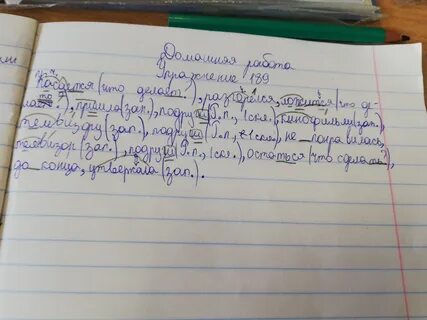 Домашняя работа
Упражнение 139
Касается (что делает?), разгорелся, ложится (что де-
лает?), пришла (зап.), подруги (Р.п., 1 скл.), кинофильм (зап.),
телевизору (зап.), подруги (Р.п., 1 скл.), не понравилась,
телевизор (зап.), подруги (Р.п., 1 скл.), остаться (что сделать?),
до конца, утверждала (зап.).